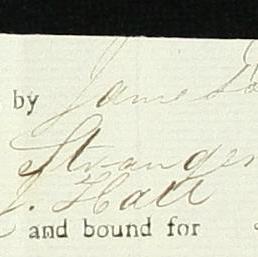 by James
Stranger
J. Hall
and bound for